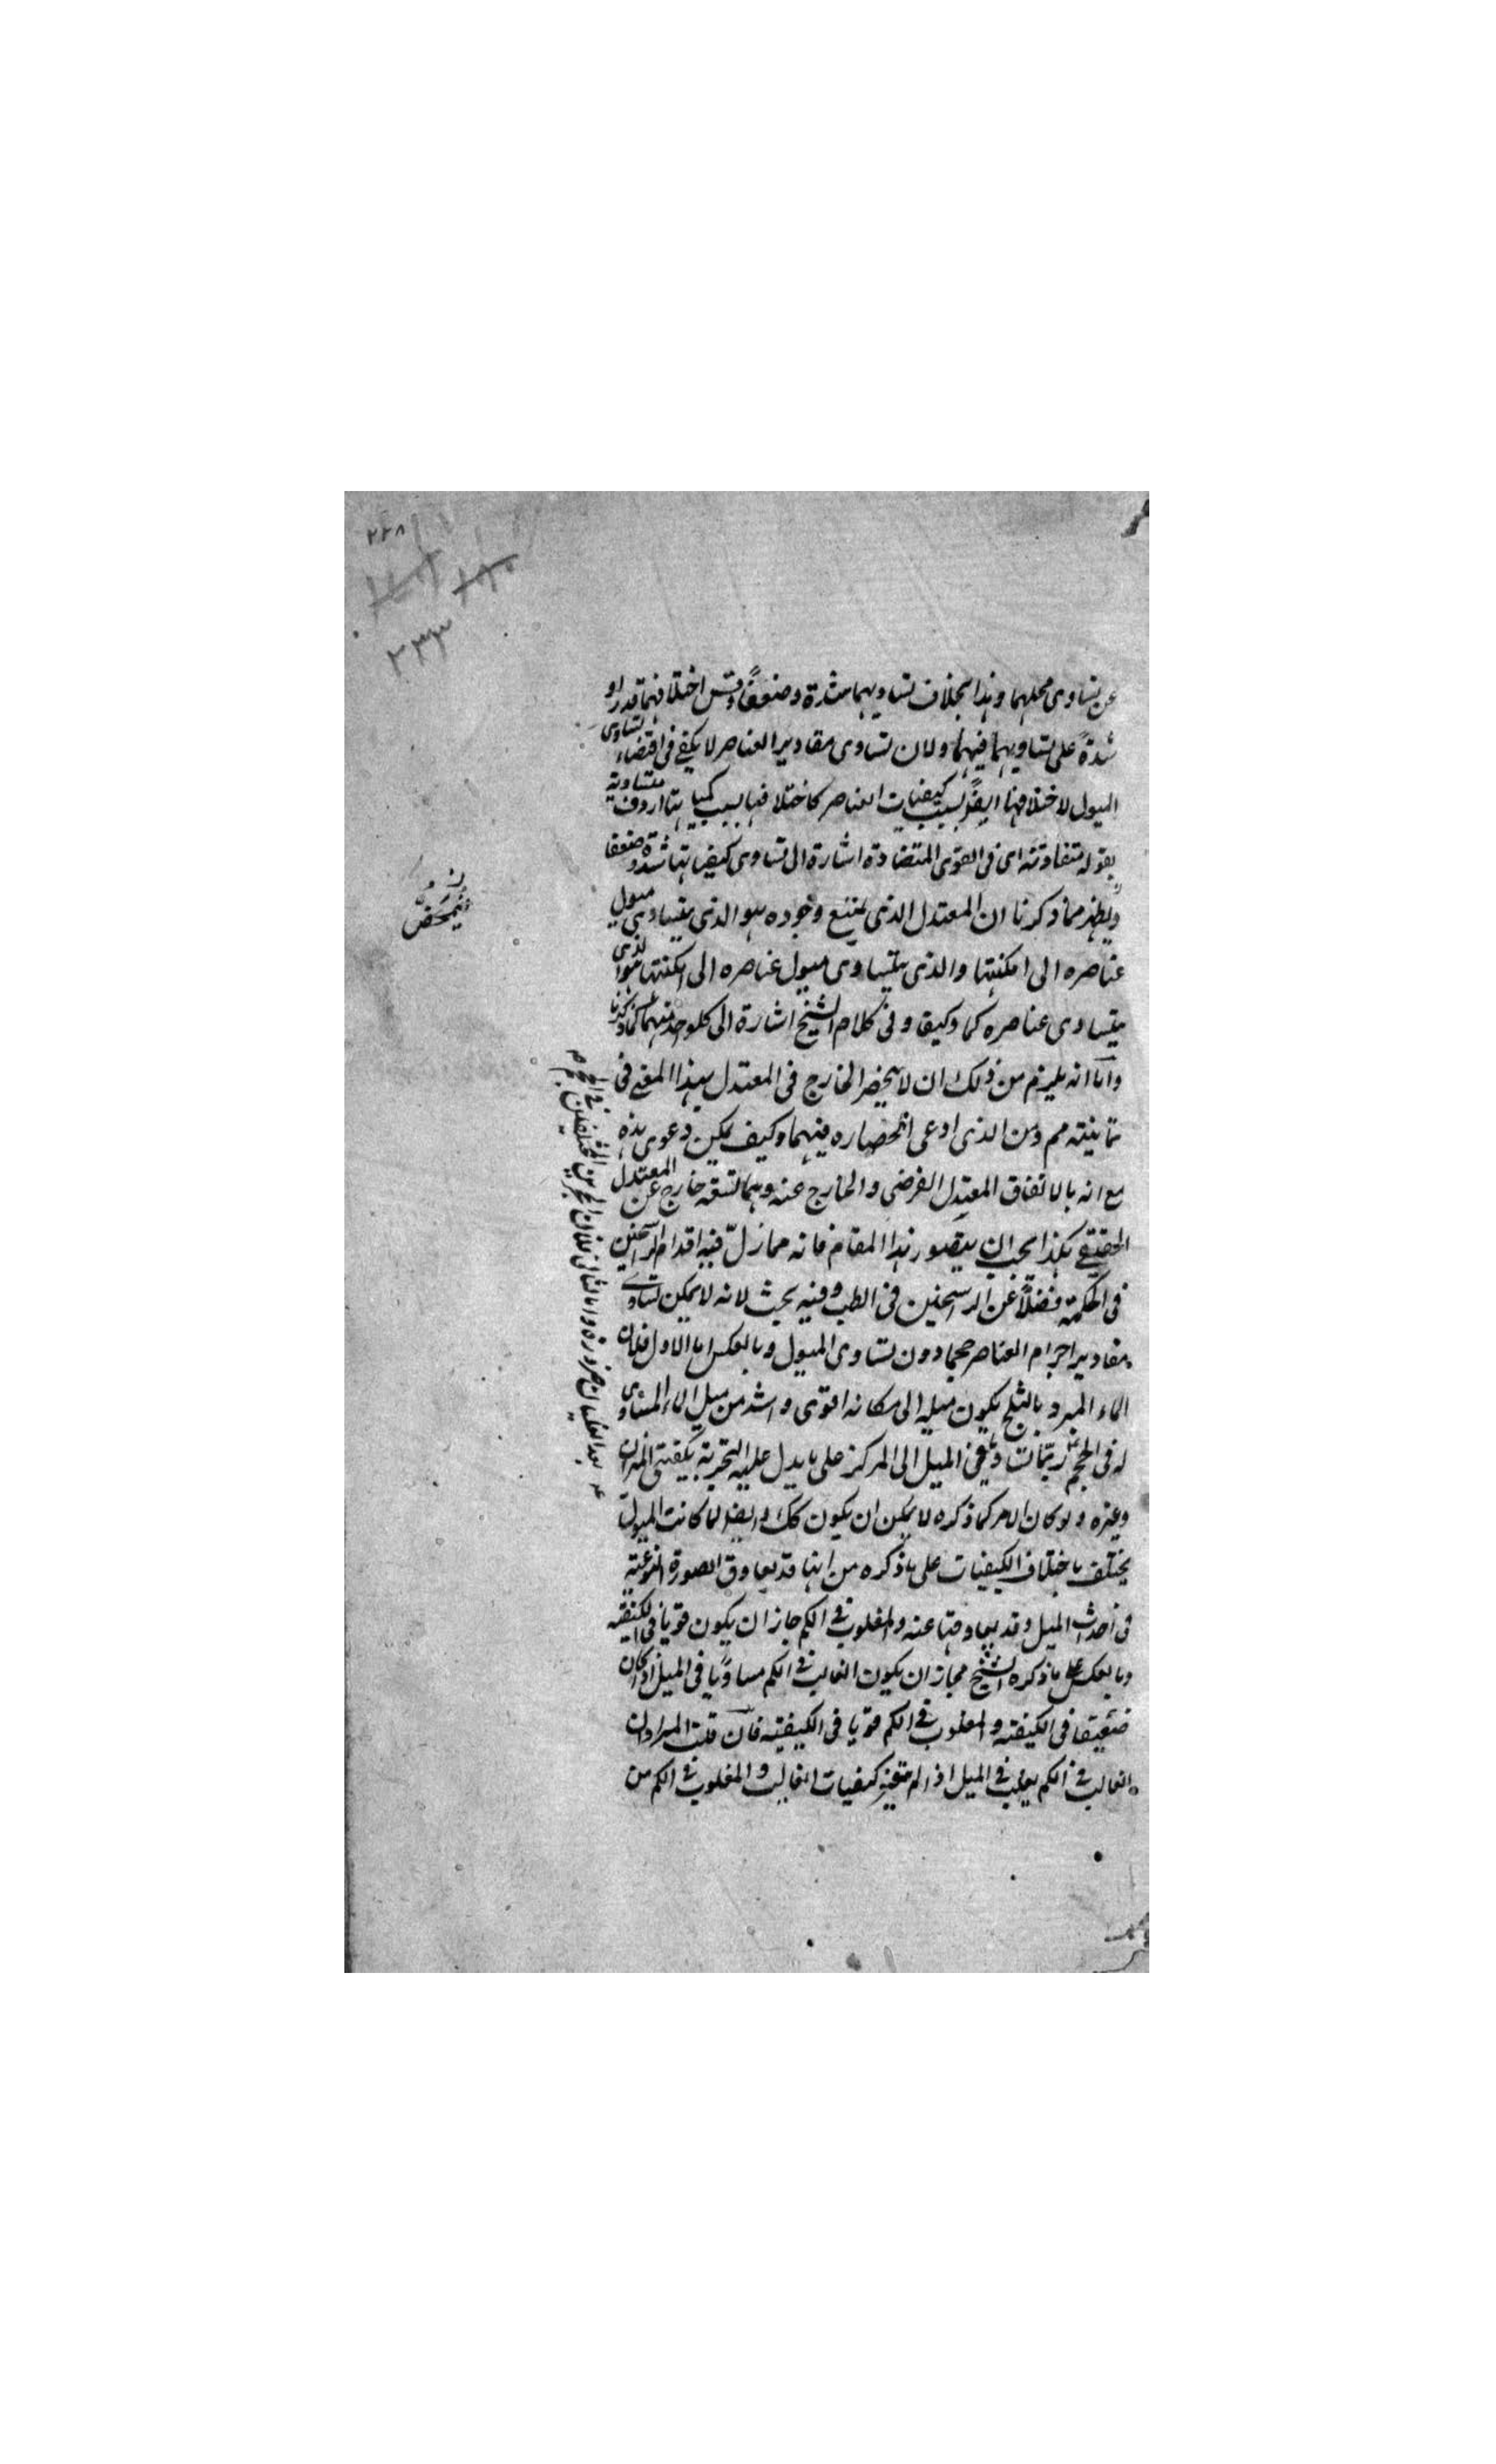 ٢٢٨
٢٣٣
عن تساوى محلهما وهذا بخلاف تساويهما شدة وضعفا وقس اختلافهما قدرا و
شدة على تساويهما فيهما ولان تساوى مقادير العناصر لا يكفى فى اقتضاء تساوى
الميول لاختلافها ايضا بسبب كيفيات العناصر كاختلافها بسبب كمياتها اردف متساوية
بقوله متفاوتة اى فى القوى المتضادة اشارة الى تساوى كيفياتها شدة وضعفا
ويظهر مما ذكرنا ان المعتدل الذى يمتنع وجوده هو الذى يتساوى ميول
عناصره الى امكنتها والذى يتساوى ميول عناصره الى امكنتها هو الذى
يتساوى عناصره كما وكيفا وفى كلام الشيخ اشارة الى كل واحد منهما كما ذكرنا
واما انه يلزم من ذلك ان لا ينحصر الخارج فى المعتدل بهذا المعنى فى
ثمانيته مم ومن الذى ادعى انحصاره فيهما وكيف يمكن دعوى هذه
مع انه بالاتفاق المعتدل الفرضى والخارج عنه وهما تسعة خارج عن المعتدل
الحقيقى هكذا يجب ان يتصور هذا المقام فانه مما زل فيه اقدام الراسخين
فى الحكمة فضلا عن الراسخين فى الطب وفيه بحث لانه لا يمكن تساوى
مقادير اجرام العناصر حجما دون تساوى الميول وبالعكس اما الاول فلان
الماء المبرد بالثلج يكون ميله الى مكانه اقوى واشد من ميل الماء المساوى
له فى الحجم الميل الى المركز على ما يدل عليه التجربة
وغيره ولو كان الامر كما ذكره لا يمكن ان يكون كك وايضا لما كانت الميول
يختلف باختلاف الكيفيات على ما ذكره من انها قد يعاوق الصورة النوعية
فى احداث الميل وقد يعاوقها عنه والمغلوب فى الكم جاز ان يكون قويا فى الكيفية
وبالعكس على ما ذكره الشيخ فجاز ان يكون الغالب فى الكم مساويا فى الميل اذا كان
ضعيفا فى الكيفية والمغلوب فى الكم قويا فى الكيفية فان قلت المراد ان
الغالب فى الكم يغلب فى الميل اذا لم يتغير كيفيات الغالب والمغلوب فى الكم من